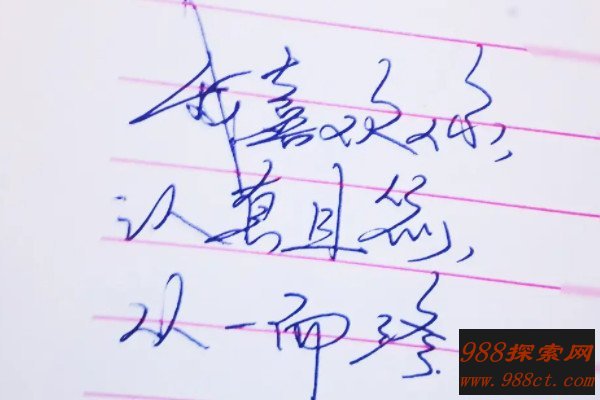 我喜欢你,
认真且怂,
从一而终.
988探索网
www.988ct.com